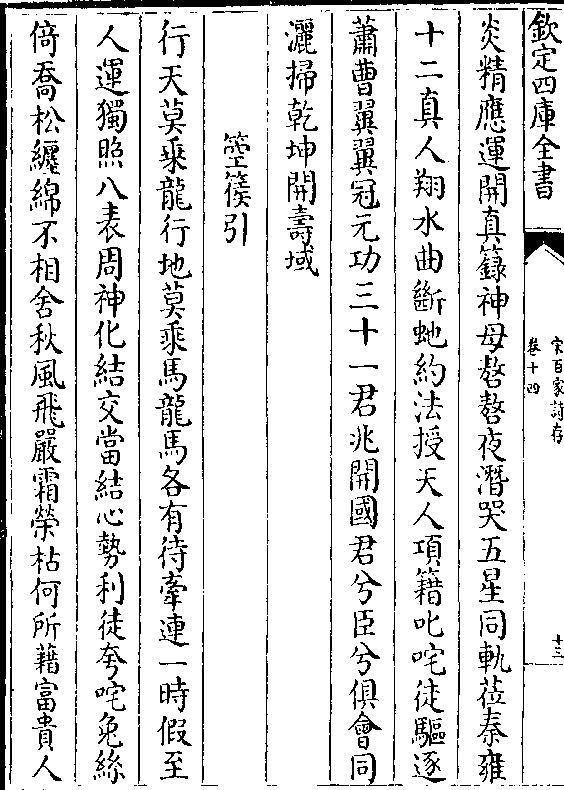 欽定四庫全書
宋百家詩存
卷十四
十三
炎精應運開真籙神母嗸嗸夜潛哭五星同軌莅秦雍
十二真人翔水曲斷虵約法授天人項籍叱咤徒驅逐
蕭曹翼翼冠元功三十一君兆開國君兮臣兮俱會同
灑掃乾坤開壽域
箜篌引
行天莫乘龍行地莫乘馬龍馬各有待牽連一時假至
人運獨照八表周神化結交當結心勢利徒夸咤兔絲
倚喬松纏綿不相舍秋風飛嚴霜榮枯何所藉富貴人